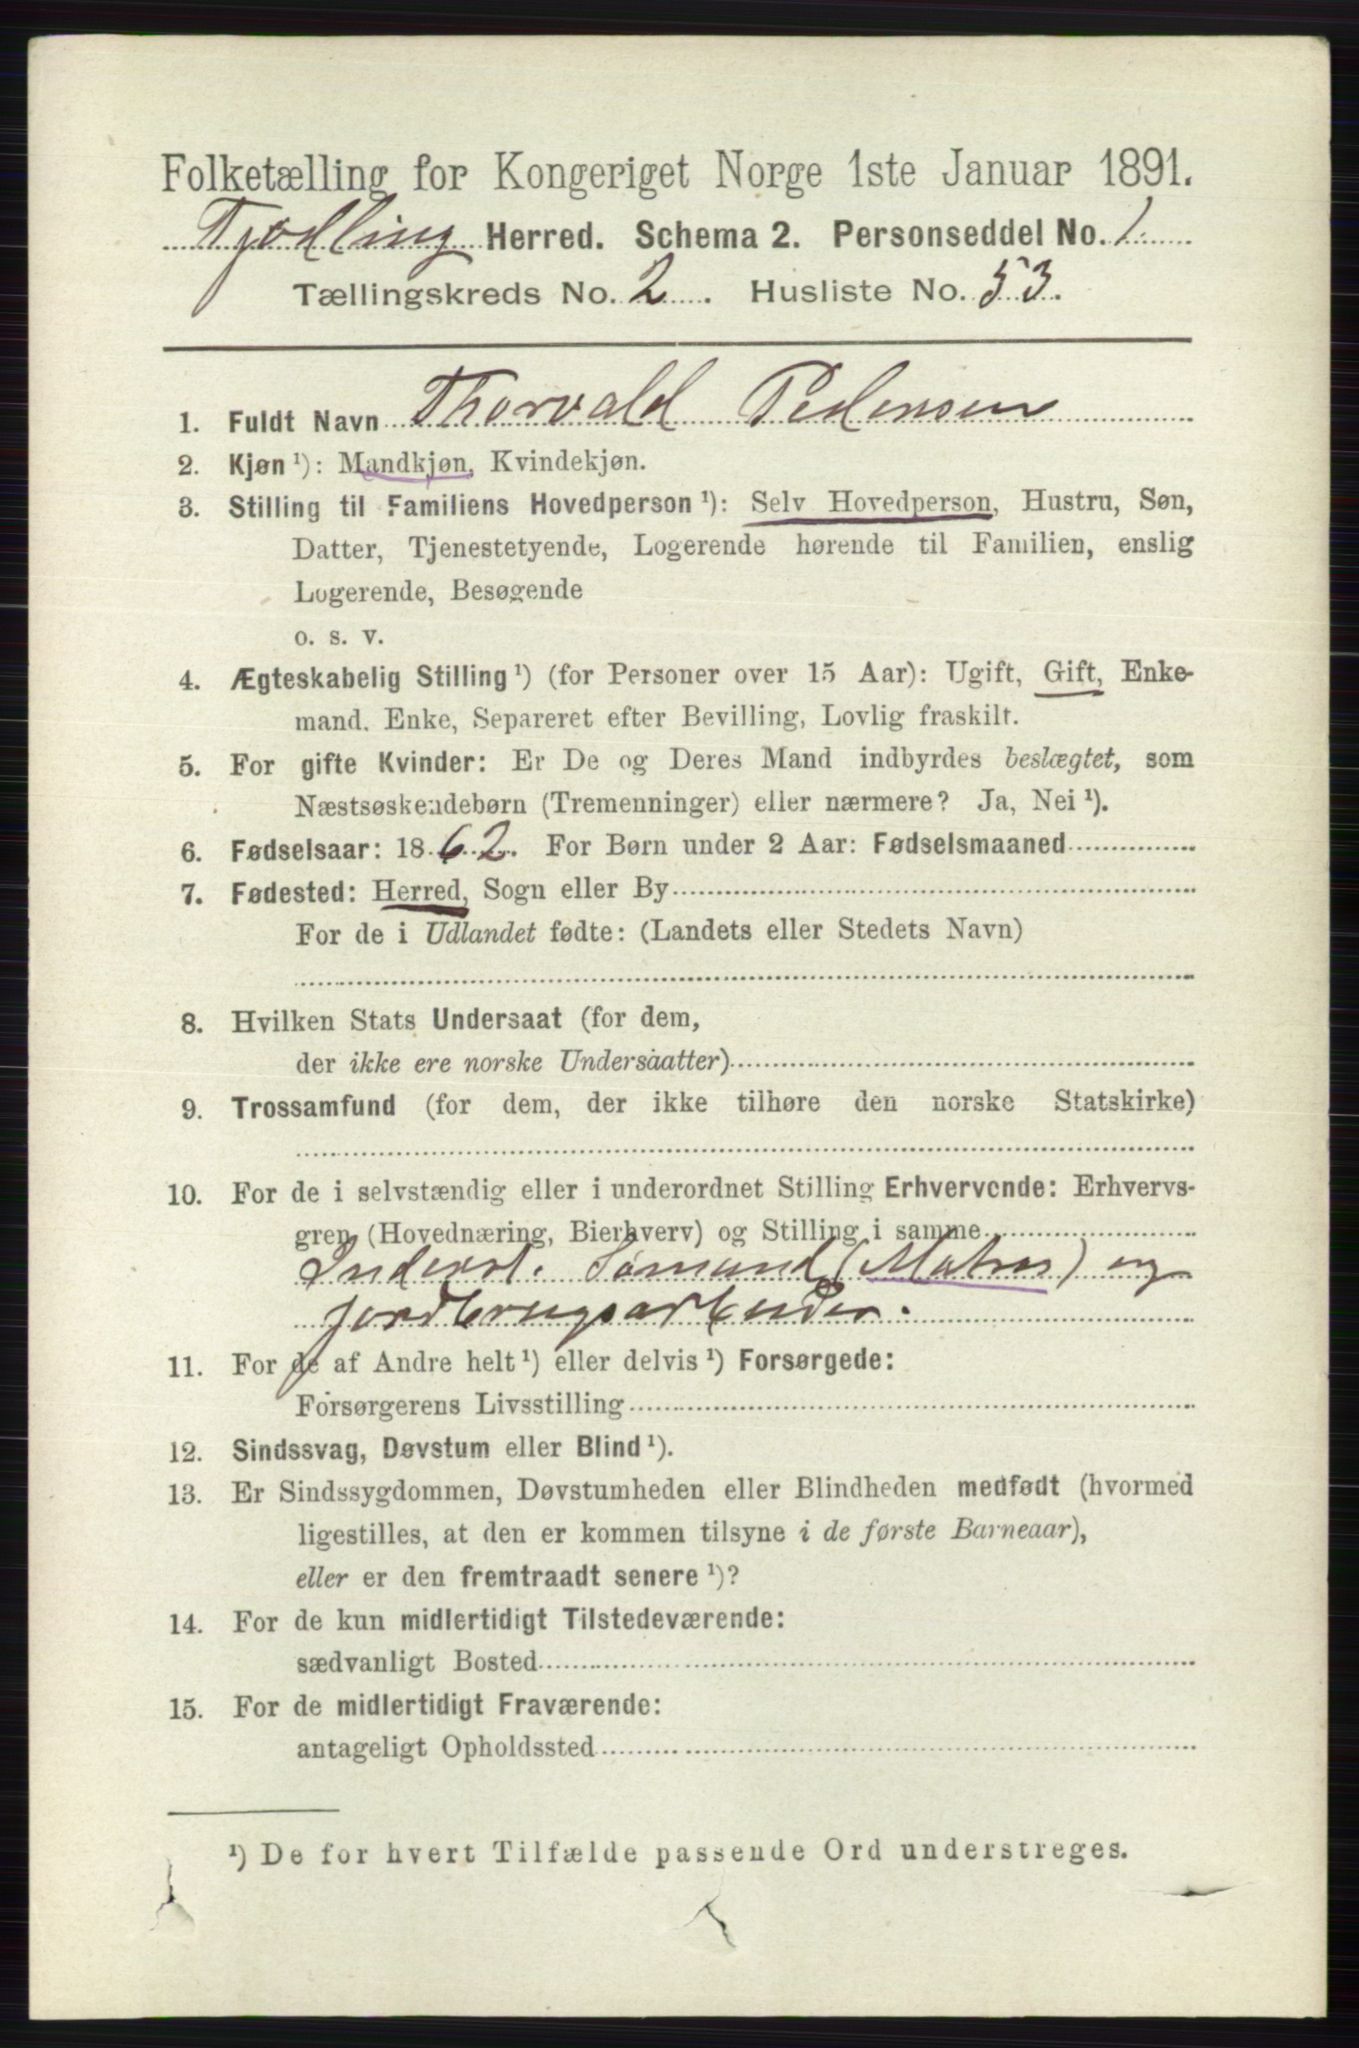 Folketælling for Kongeriget Norge 1ste Januar 1891.
Tjødling Herred. Schema 2. Personseddel No. 1
Tællingskreds No. 2. Husliste No. 53.
1. Fuldt Navn Thorvald Pedersen
2. Kjøn ¹): Mandkjøn, Kvindekjøn.
3. Stilling til Familiens Hovedperson ¹): Selv Hovedperson, Hustru, Søn,
Datter, Tjenestetyende, Logerende hørende til Familien, enslig
Logerende, Besøgende
o. s. v.
4. Ægteskabelig Stilling ¹) (for Personer over 15 Aar): Ugift, Gift, Enke-
mand. Enke, Separeret efter Bevilling, Lovlig fraskilt.
5. For gifte Kvinder: Er De og Deres Mand indbyrdes beslægtet, som
Næstsøskendebørn (Tremenninger) eller nærmere? Ja, Nei ¹).
6. Fødselsaar: 1862. For Børn under 2 Aar: Fødselsmaaned
7. Fødested: Herred, Sogn eller By
For de i Udlandet fødte: (Landets eller Stedets Navn)
8. Hvilken Stats Undersaat (for dem,
der ikke ere norske Undersaatter)
9. Trossamfund (for dem, der ikke tilhøre den norske Statskirke)
10. For de i selvstændig eller i underordnet Stilling Erhvervende: Erhvervs-
gren (Hovednæring, Bierhverv) og Stilling i samme
Inderst. Sømand (Matros) og
jordbrugsarbeider.
11. For de af Andre helt ¹) eller delvis ¹) Forsørgede:
Forsørgerens Livsstilling
12. Sindssvag, Døvstum eller Blind ¹).
13. Er Sindssygdommen, Døvstumheden eller Blindheden medfødt (hvormed
ligestilles, at den er kommen tilsyne i de første Barneaar),
eller er den fremtraadt senere ¹)?
14. For de kun midlertidigt Tilstedeværende:
sædvanligt Bosted
15. For de midlertidigt Fraværende:
antageligt Opholdssted
¹) De for hvert Tilfælde passende Ord understreges.